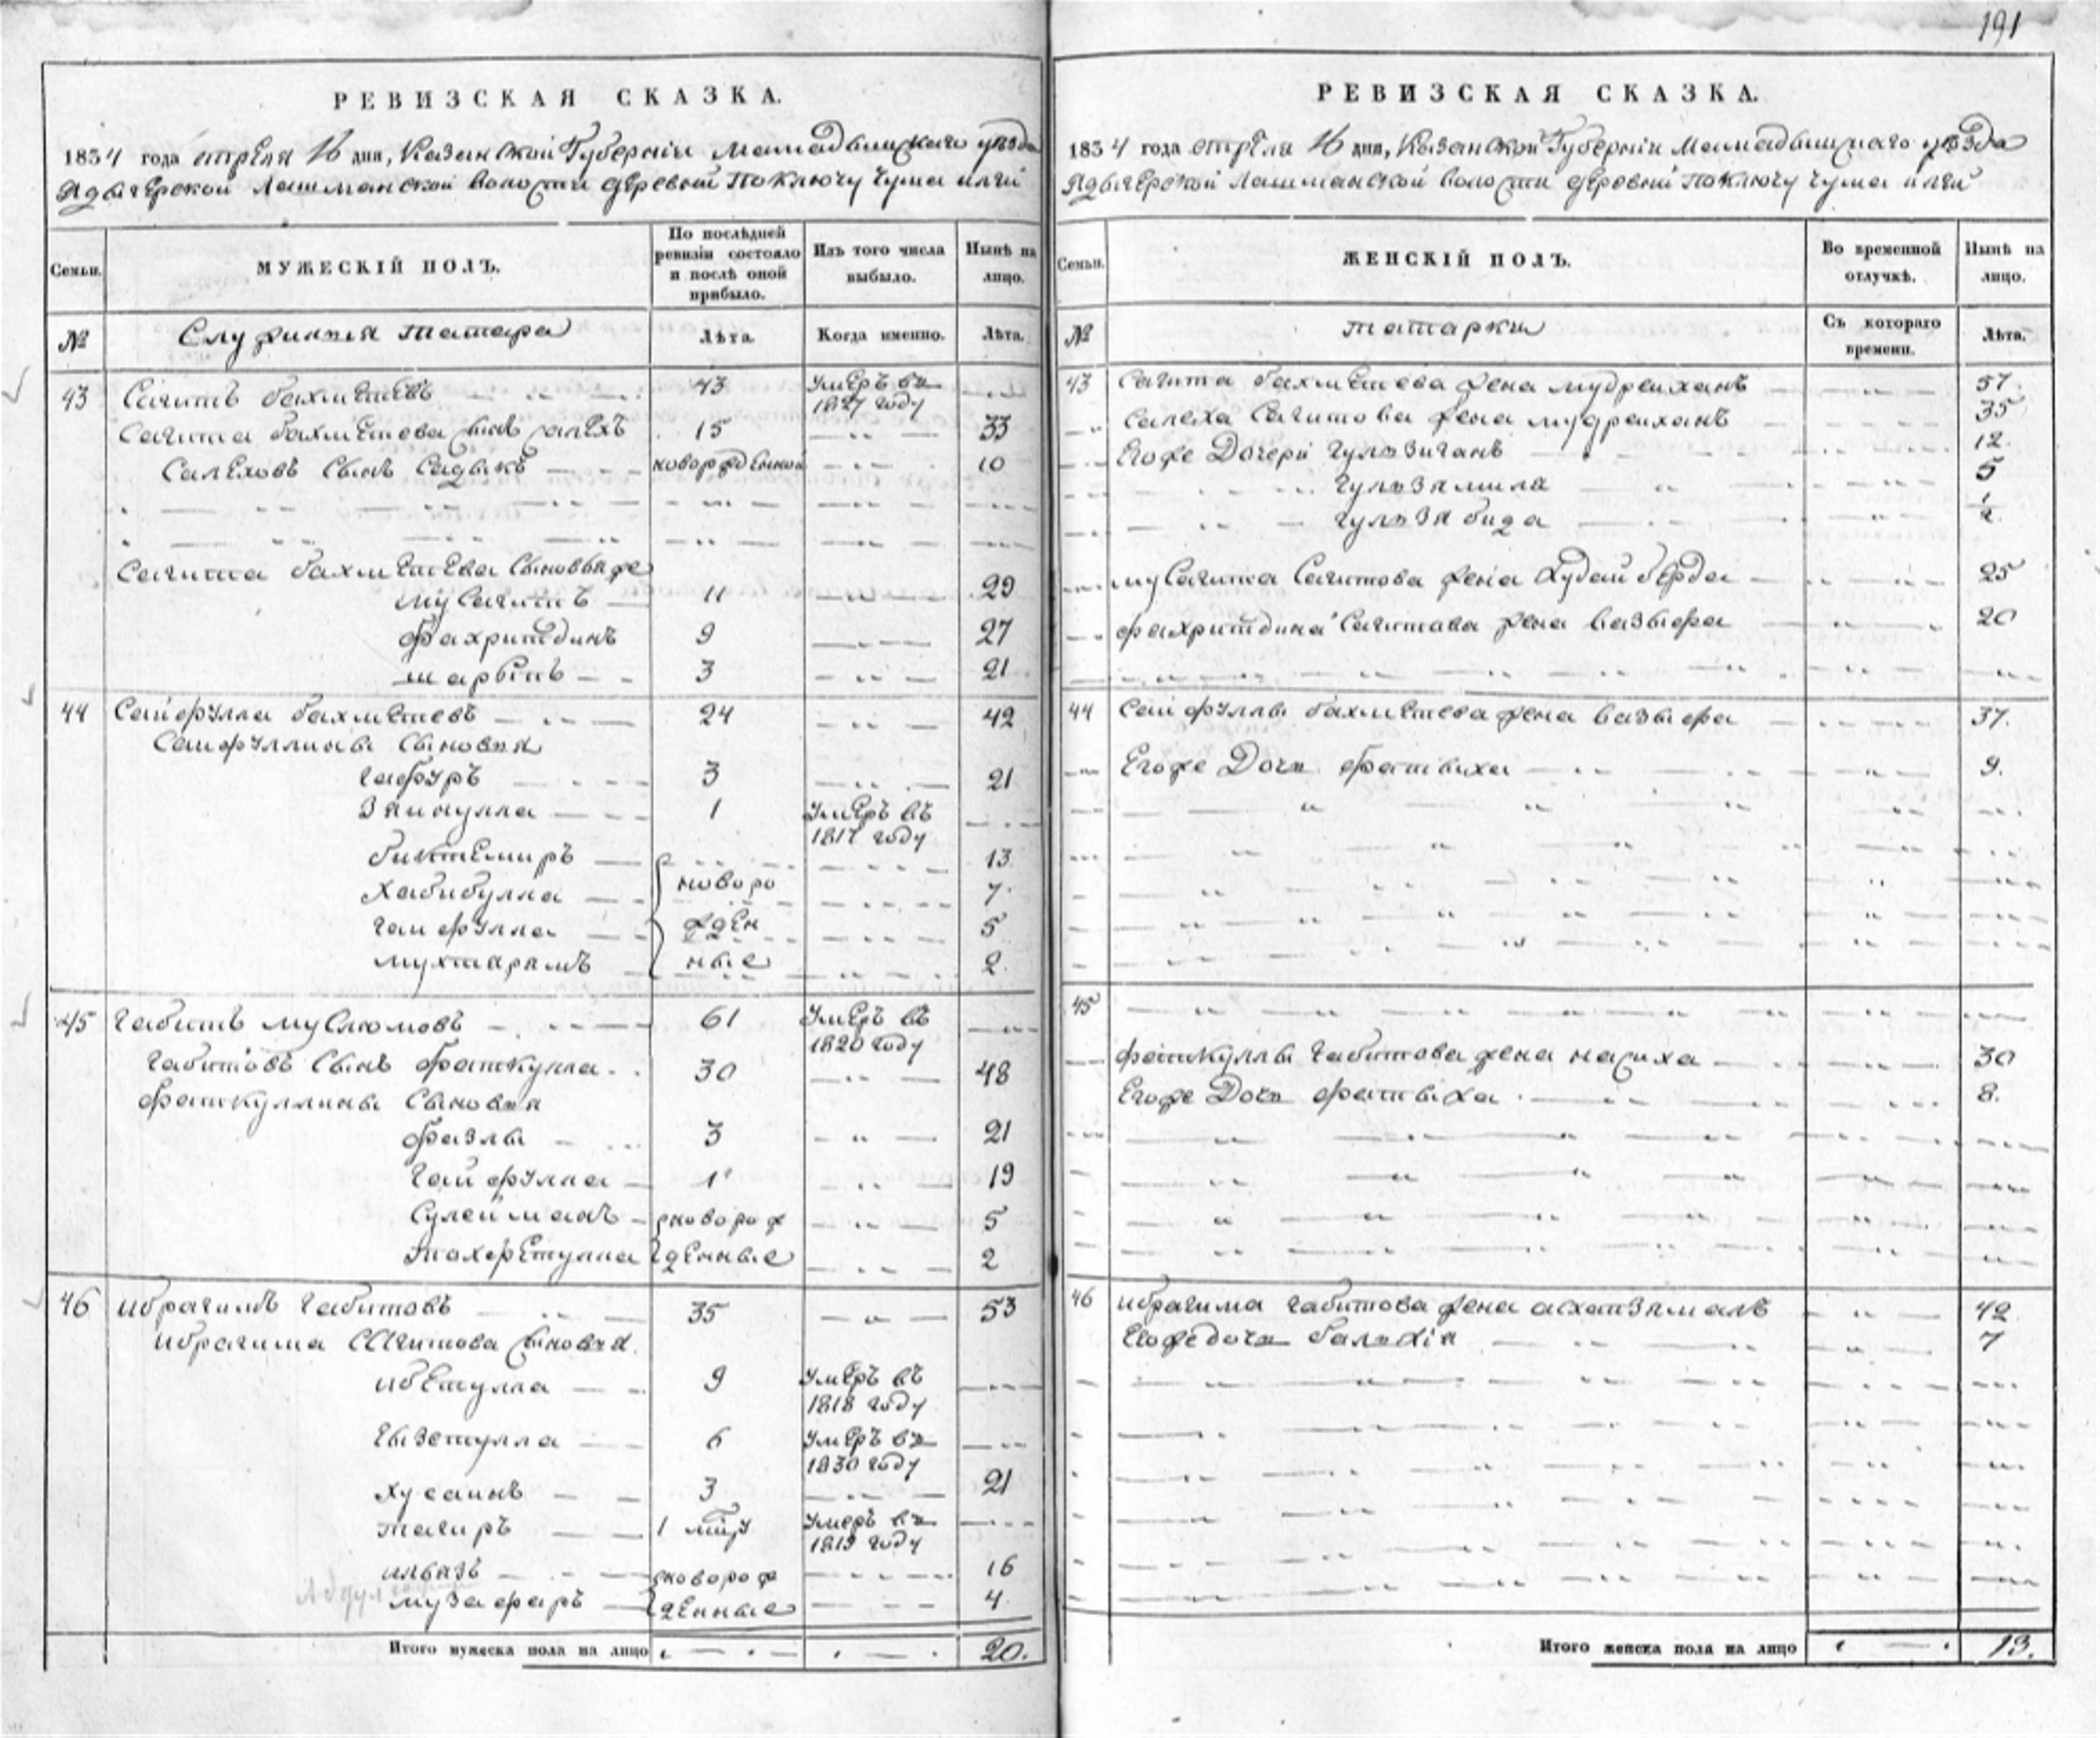 191
РЕВИЗСКАЯ СКАЗКА.
1834 года апреля 16 дня, Казанской Губерніи Мамадышскаго уезда
Лашманской волости деревни Поключу Чума илги
Семьи.
МУЖЕСКІЙ ПОЛЪ.
По послѣдней ревизіи состояло и послѣ оной прибыло.
Изъ того числа выбыло.
Нынѣ на лицо.
№
Служилыя татара
Лѣта.
Когда именно.
Лѣта.
43 Сагитъ Бахметевъ 43 умеръ въ 1827 году
Сагита Бахметева сынъ Салехъ 15 33
Салеховъ сынъ Садыкъ новорожденной 10
Сагита Бахметева сыновья же
Мусагитъ 11 29
Фахритдинъ 9 27
Шарыпъ 3 21
44 Сайфулла Бахметевъ 24 42
Сайфуллины сыновья
Гафуръ 3 21
Зяйнулла 1 умеръ въ 1817 году
Биктемиръ 13
Хабибулла новоро 7
Гайфулла жден 5
Мухтарямъ ные 2
45 Габитъ Муслюмовъ 61 умеръ въ 1820 году
Габитовъ сынъ Фаткулла 30 48
Фаткуллины сыновья
Фазлы 3 21
Гайфулла 1 19
Сулейманъ новорож 5
денные 2
46 Ибрагимъ Габитовъ 35 53
Ибрагима сыновья
Ибетулла 9 умеръ въ 1818 году
Гызетулла 6 умеръ въ 1830 году
Хусаинъ 3 21
Тагиръ 1 умеръ въ 1819 году
Ильязъ новорож 16
Музафаръ денные 4
Итого мужеска пола на лицо 20.
РЕВИЗСКАЯ СКАЗКА.
1834 года апреля 16 дня, Казанской Губерніи Мамадышскаго уезда
Лашманской волости деревни Поключу Чума илги
Семьи.
ЖЕНСКІЙ ПОЛЪ.
Во временной отлучкѣ.
Нынѣ на лицо.
№
татарки
Съ котораго времени.
Лѣта.
43 Сагита Бахметева жена Мудрыханъ 57.
Салеха Сагитова жена Мудрыханъ 35
Егоже дочери Гульзиганъ 12
Гульзямиля 5
Гульзябида 1/2
Мусагита Сагитова жена Худайберда 25
Фахритдина Сагитова жена Вазыфа 20
44 Сайфуллы Бахметева жена Вазыфа 37.
Егоже дочь Фатыха 9.
45
Фаткуллы Габитова жена Насиха 30
Егоже дочь Фатыха 8.
46 Ибрагима Габитова жена Асхапзямалъ 42
Егоже дочь Бальхія 7
Итого женска пола на лицо 13.